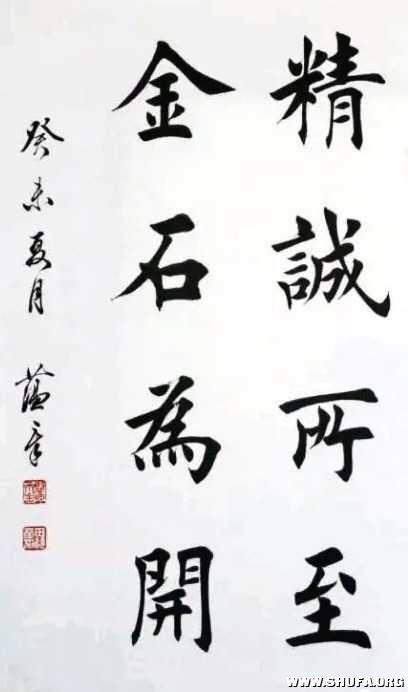 精誠所至
金石為開
癸未夏月 蕴章
WWW.SHUFA.ORG